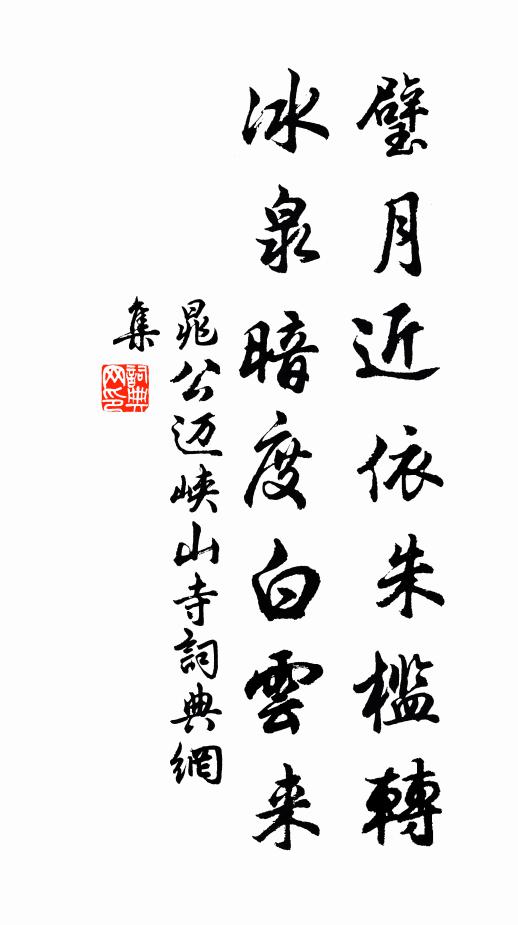 璧月近依朱檻轉
冰泉暗度白雲来
晁公迈峡山寺詞典網
集
詞典
网印